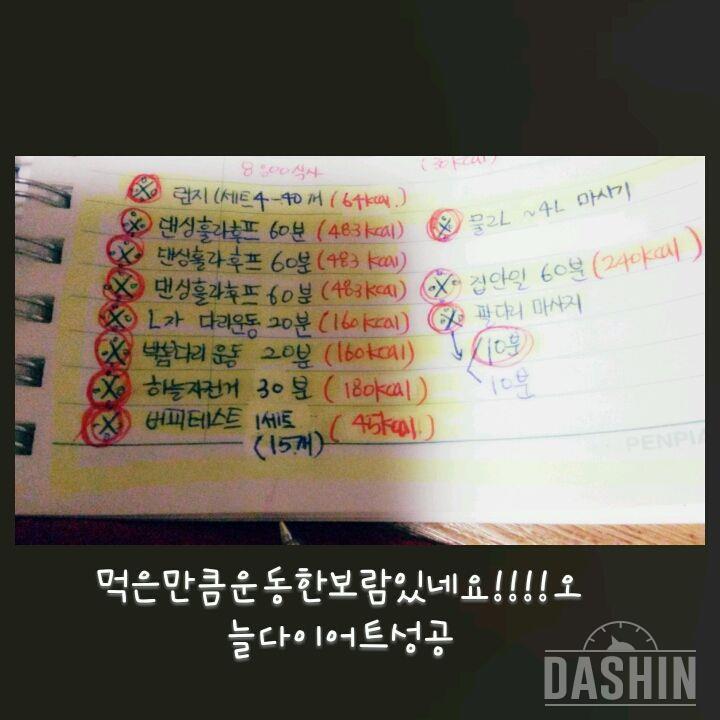 런지 1세트 4-40개 (64kcal.)
댄싱훌라후프 60분 (483kcal)
댄싱훌라후프 60분 (483kcal)
댄싱훌라후프 60분 (483kcal)
L자 다리운동 20분 (160kcal)
벽봄다리 운동 20분 (160kcal)
하늘자전거 30분 (180kcal)
버피테스트 1세트 (45kcal.)
(15개)
물2L ~4L 마시기
집안일 60분 (240kcal)
팔다리 마사지
10분
10분
PENPIA
먹은만큼운동한보람있네요!!!!오
늘다이어트성공
DASHIN